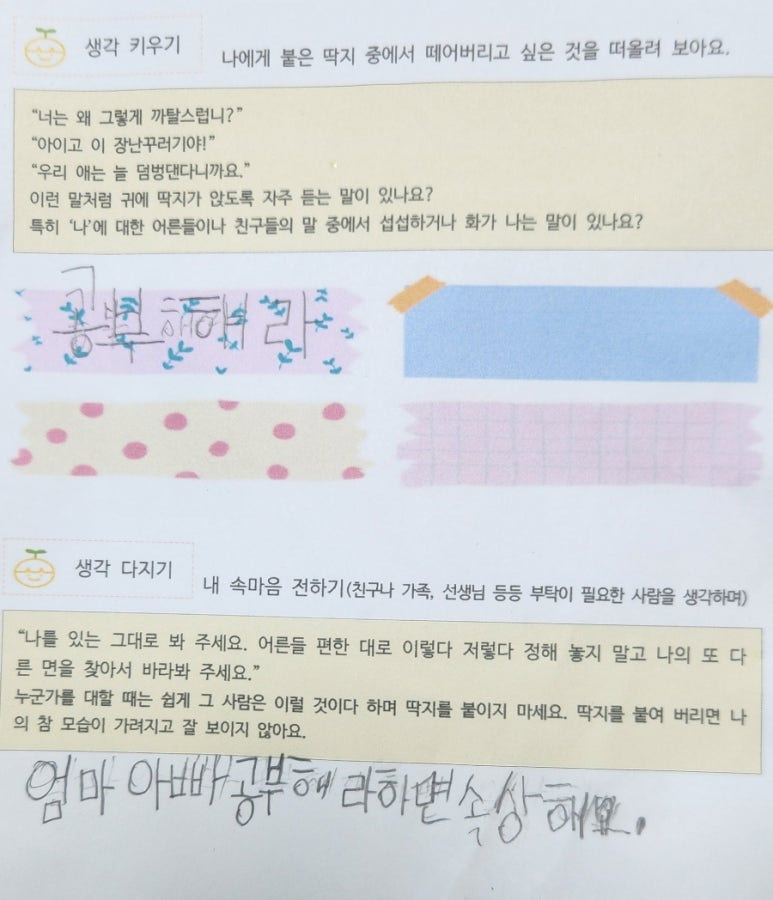 생각 키우기
나에게 붙은 딱지 중에서 떼어버리고 싶은 것을 떠올려 보아요.
“너는 왜 그렇게 까탈스럽니?”
“아이고 이 장난꾸러기야!”
“우리 애는 늘 덤벙댄다니까요.”
이런 말처럼 귀에 딱지가 앉도록 자주 듣는 말이 있나요?
특히 ‘나’에 대한 어른들이나 친구들의 말 중에서 섭섭하거나 화가 나는 말이 있나요?
공부해라
생각 다지기
내 속마음 전하기(친구나 가족, 선생님 등등 부탁이 필요한 사람을 생각하며)
“나를 있는 그대로 봐 주세요. 어른들 편한 대로 이렇다 저렇다 정해 놓지 말고 나의 또 다
른 면을 찾아서 바라봐 주세요.”
누군가를 대할 때는 쉽게 그 사람은 이럴 것이다 하며 딱지를 붙이지 마세요. 딱지를 붙여 버리면 나
의 참 모습이 가려지고 잘 보이지 않아요.
엄마 아빠가 공부해 라하면 속상해요.